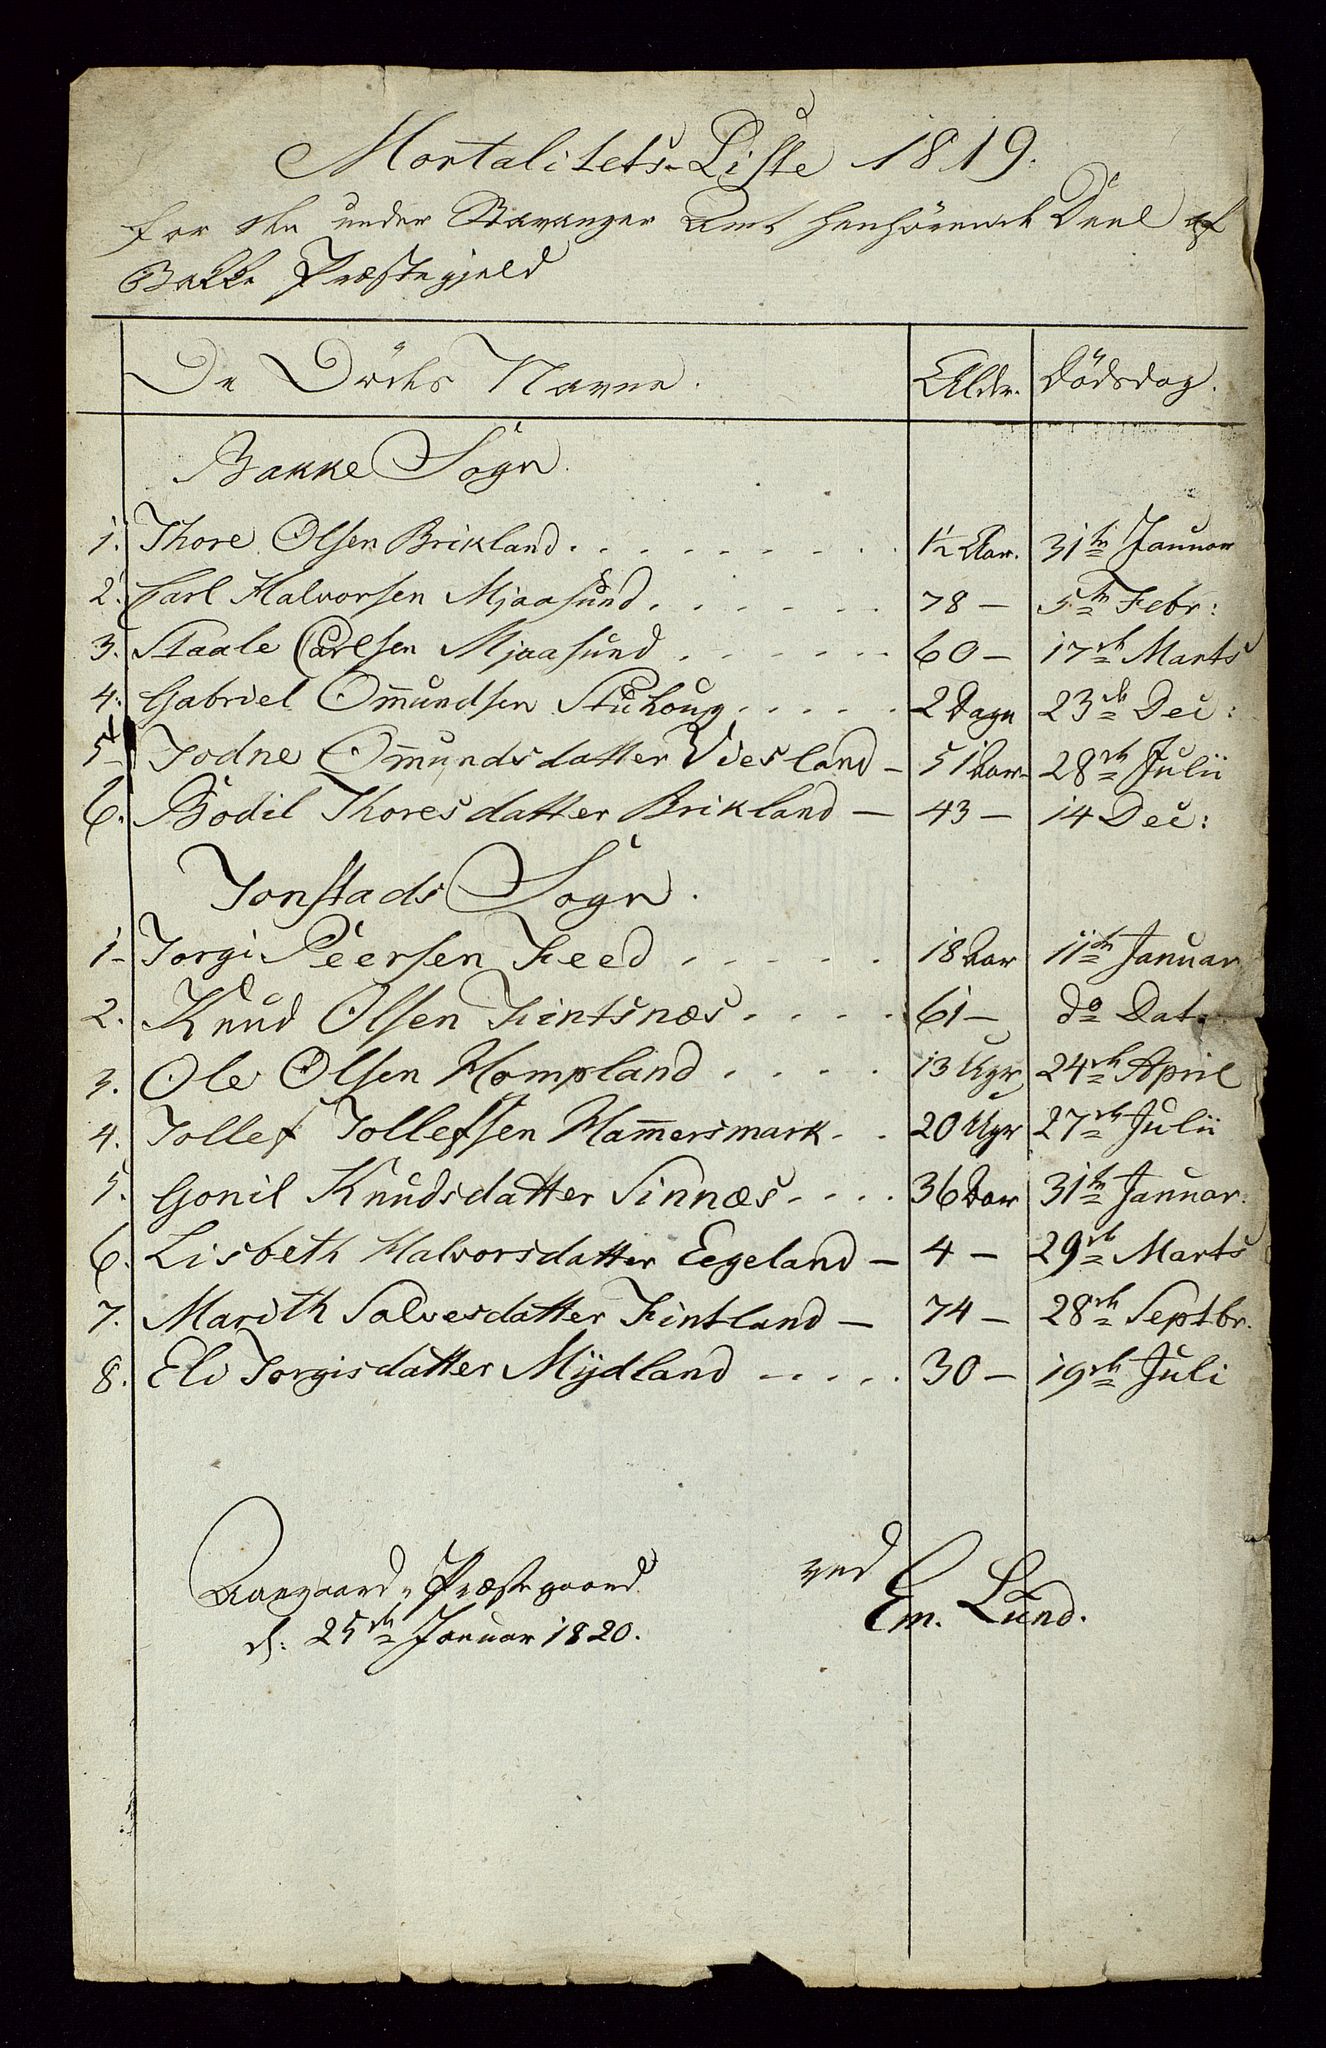 Mortalitets-Liste 1819.
for den under Stavanger Amt henhörende Deel af
Bakke Præstegjeld
De Dödes Navne. Alder. Dödsdag.
Bakke Sogn.
1. Thore Olsen Brikland. 1/2 Aar. 31te Januar
2. Carl Halvorsen Mjaasund. 78 — 5te Febr:
3. Staale Carlsen Mjaasund. 60 — 17de Marts
4. Gabriel Om̅undsen Stuhoug. 2 Dage 23de Dec:
5 — Jodne Om̅undsdatter Viesland — 51 Aar — 28de Julii
6. Bodil Thoresdatter Brikland — 43 — 14 Dec:
Tonstads Sogn.
1 — Torgi Peersen Feed 18 Aar 11te Januar
2. Knud Olsen Fintsnæs. 61 — do Dat.
3. Ole Olsen Hompland 13 Uger 24de April
4. Tollef Tollefsen Ham̅ersmark. 20 Uger 27de Julii
5. Gonil Knudsdatter Sinnæs. 36 Aar 31te Januar.
6. Lisbeth Halvorsdatter Eegeland — 4 — 29de Marts
7. Marith Salvesdatter Fintland — 74 — 28de Septbr.
8. Eli Torgisdatter Mydland 30 — 19de Juli
Aamgaard Præstegaard ved
d: 25de Januar 1820. Em. Lund.